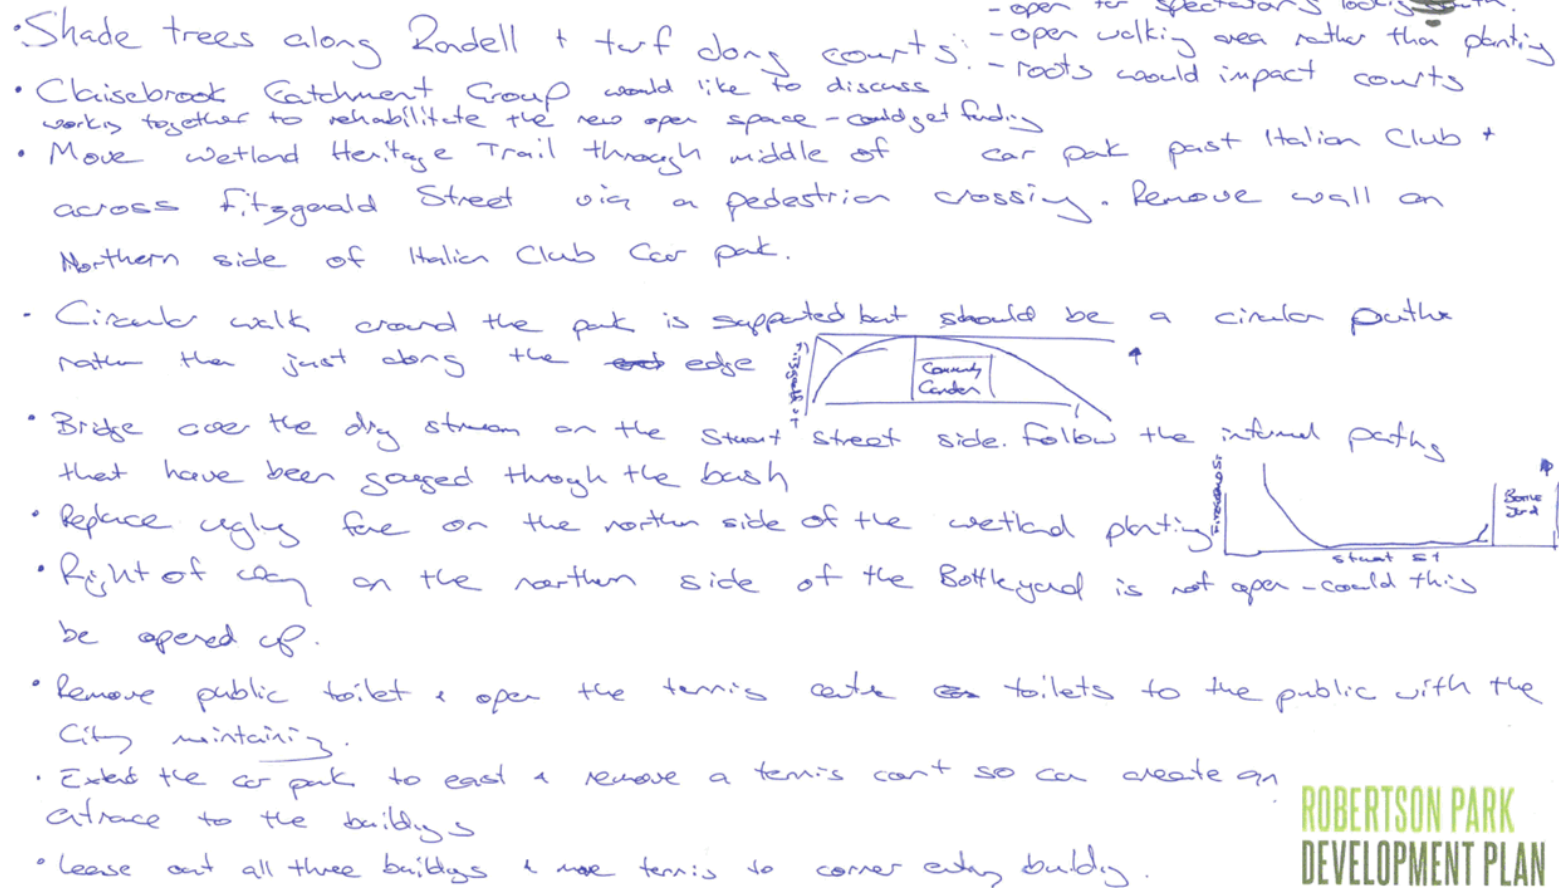 - open for spectators looking south.
• Shade trees along Randell + turf along courts: - open walking area rather than planting
- roots would impact courts
• Claisebrook Catchment Group would like to discuss
working together to rehabilitate the new open space - could get funding
• Move Wetland Heritage Trail through middle of car park past Italian Club +
across Fitzgerald Street via a pedestrian crossing. Remove wall on
Northern side of Italian Club Car park.
• Circular walk around the park is supported but should be a circular path
rather than just along the edge
Fitzgerald St
Community
Garden
• Bridge over the dry stream on the Stuart Street side. Follow the informal paths
that have been gouged through the bush
• Replace ugly fence on the northern side of the wetland planting
Fitzgerald St
Bottle
Yard
Stuart St
• Right of way on the northern side of the Bottleyard is not open - could this
be opened up.
• Remove public toilet & open the tennis centre toilets to the public with the
City maintaining.
• Extend the car park to east & remove a tennis court so can create an
entrance to the buildings
• Lease out all three buildings & move tennis to corner entry building.
ROBERTSON PARK
DEVELOPMENT PLAN